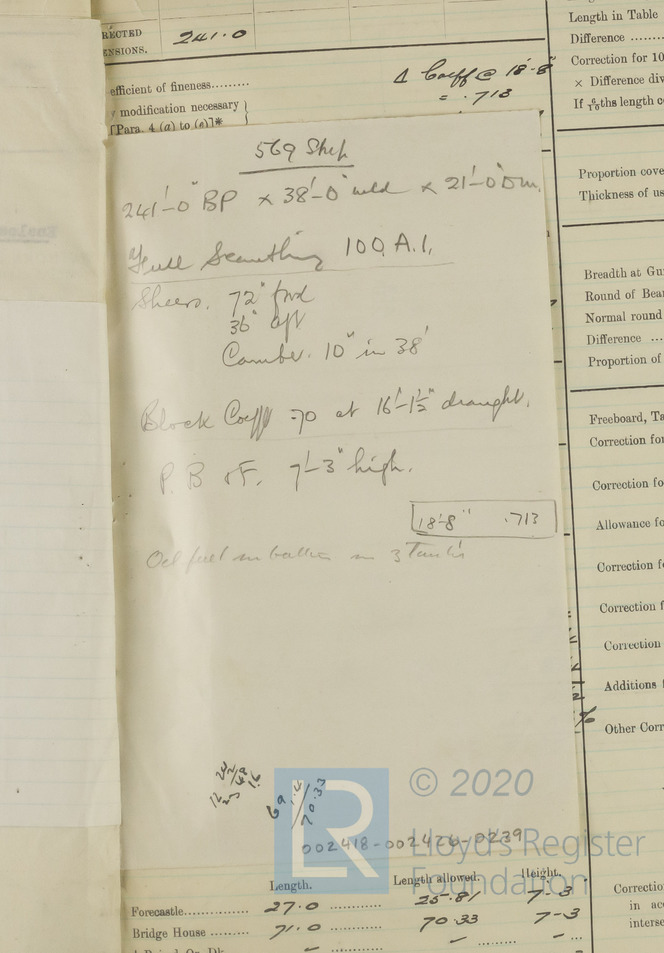 RECTED
ENSIONS. 241.0
efficient of fineness.........
y modification necessary
[Para. 4 (a) to (e)]*
Δ Coeff @ 18'-8"
= .713
Length in Table
Difference
Correction for 10
× Difference div
ths length c
Proportion cove
Thickness of us
Breadth at Gu
Round of Bea
Normal round
Difference ...
Proportion of
Freeboard, Ta
Correction for
Correction fo
Allowance fo
Correction fo
Correction f
Correction
Additions
Other Corr
569 Ship
241'-0" BP × 38'-0" mld × 21'-0" Dm.
Full Scantling 100 A.1.
Sheers. 72" fwd
36" aft
Camber. 10" in 38'
Block Coeff .70 at 16'-1½" draught.
P. B & F. 7'-3" high.
18'-8" .713
Oil fuel in 3 Tanks
70.33
LR
© 2020
Lloyd's Register
Foundation
002418-002426-0239
Length. Length allowed. Height.
Forecastle............... 27.0 ............ 25.81 7-3
Bridge House ......... 71.0 ............ 70.33 7-3
Correctio
in acc
interse